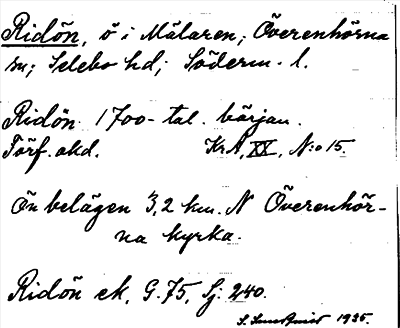 Ridön, ö i Mälaren, Överenhörna
sn; Selebo hd; Söderm. l.
Ridön 1700-tal. början.
Förf. okd. KrA, XX, N:o 15.
Ön belägen 3,2 km. N Överenhör-
na kyrka.
Ridön ek. G. 75, Sj: 240.
1935.